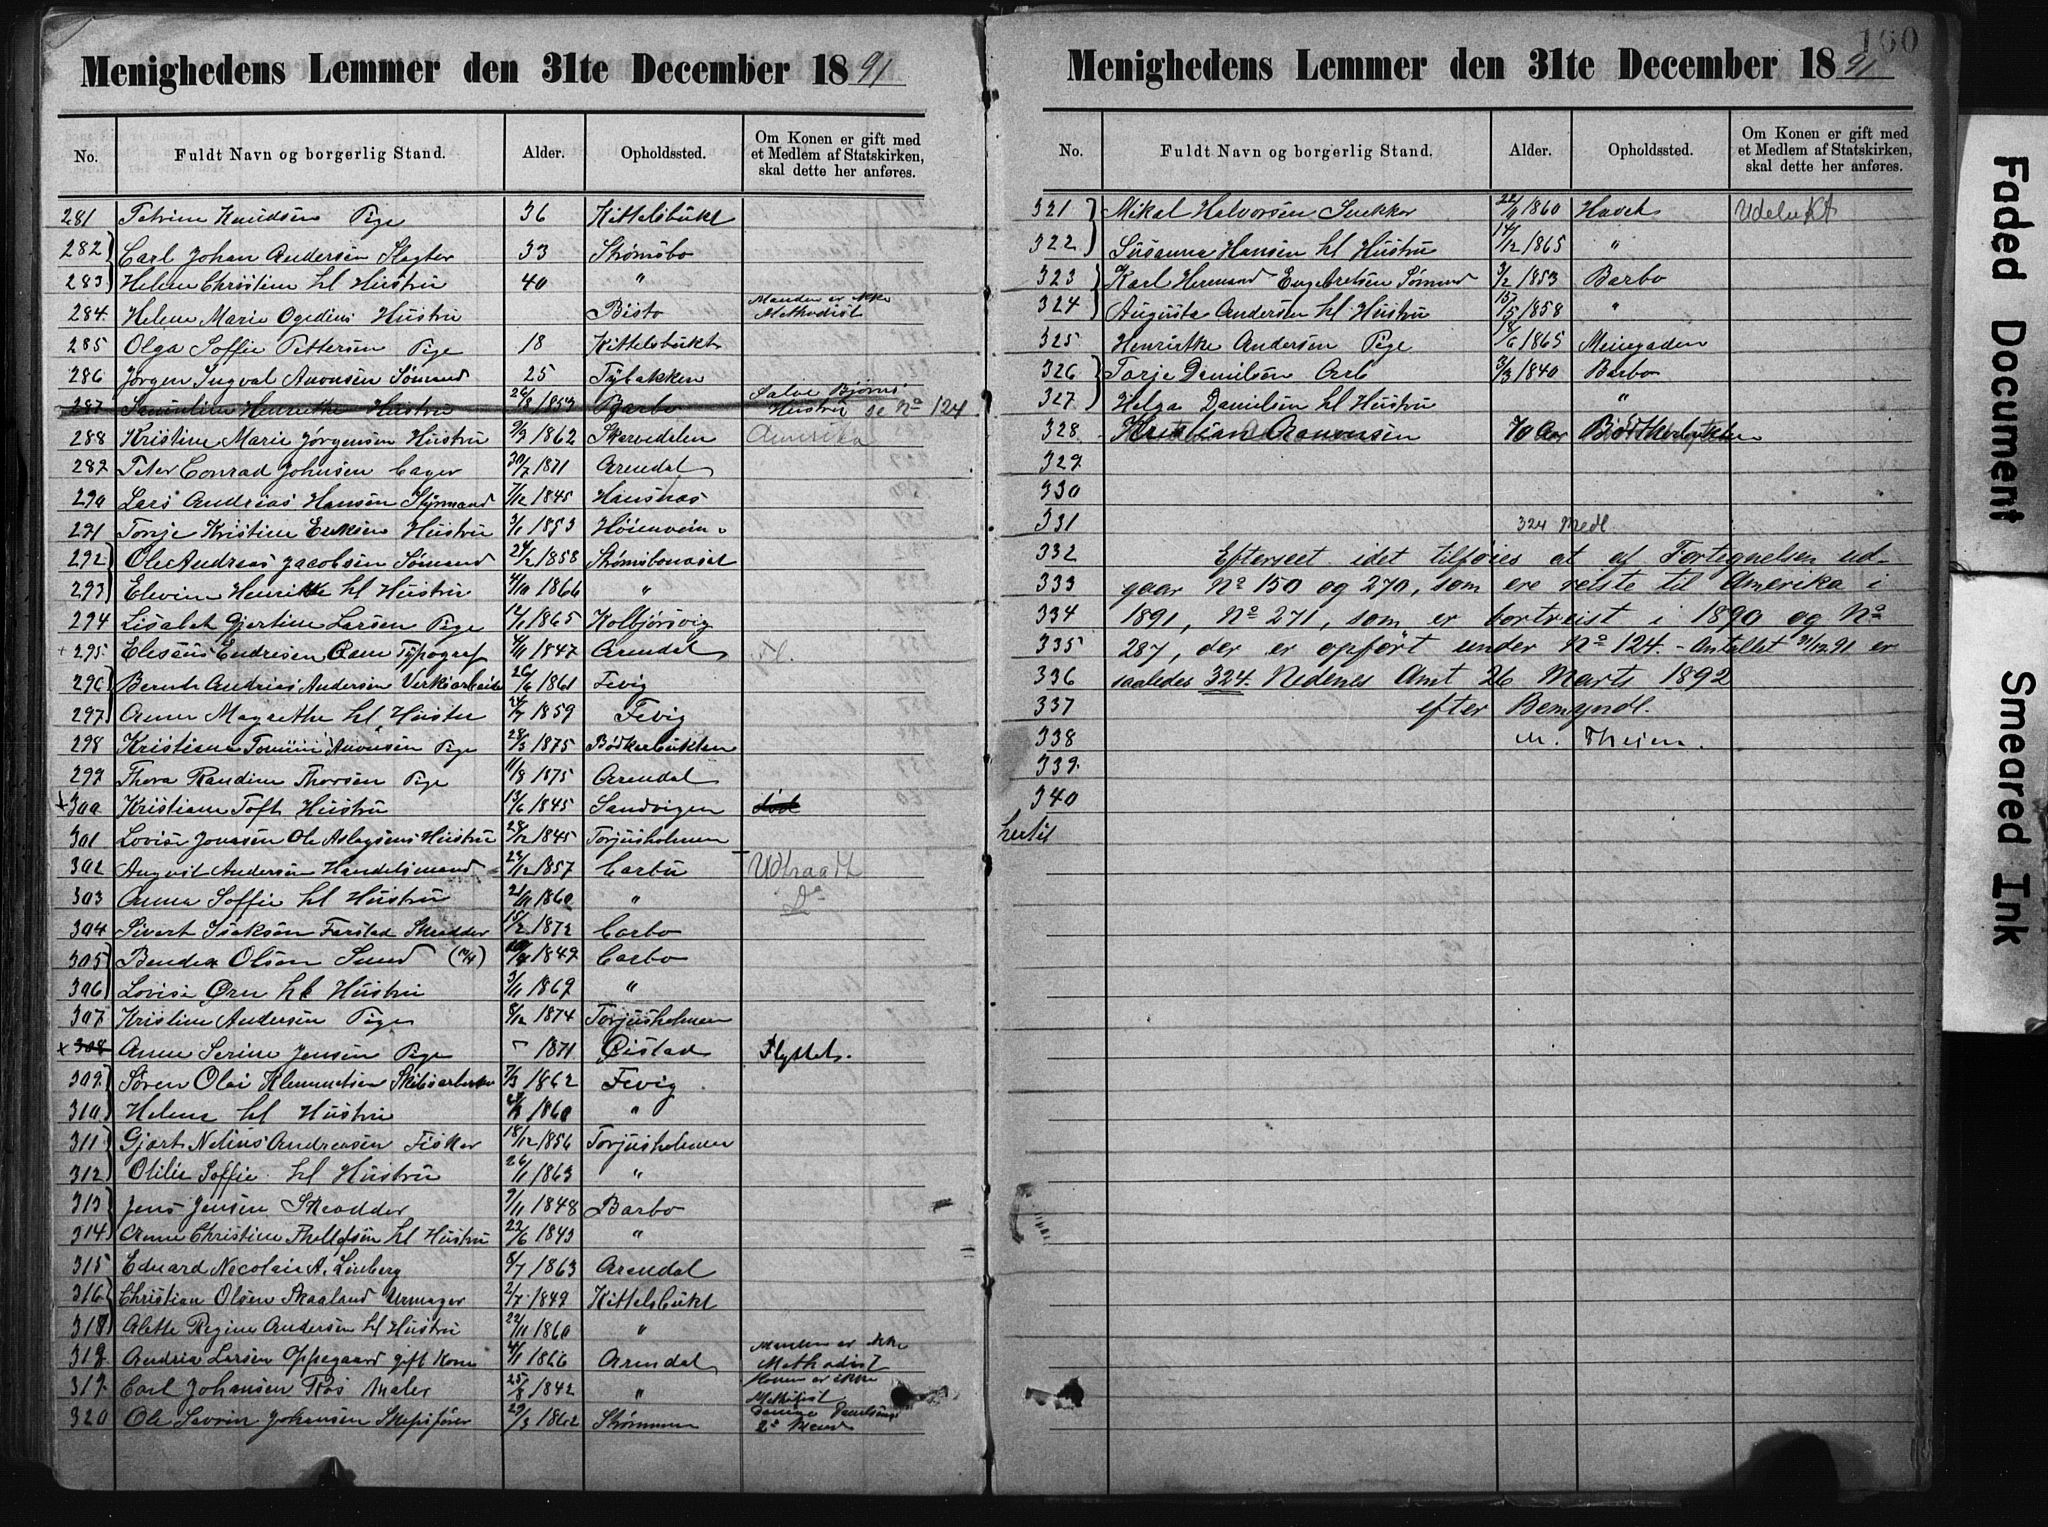 Menighedens Lemmer den 31te December 1891
No. Fuldt Navn og borgerlig Stand. Alder. Opholdssted. Om Konen er gift med et Medlem af Statskirken, skal dette her anføres.
281 Petrine Knudsen Pige 36 Kittelsbukt
282 Carl Johan Andersen Slagter 33 Strømsbo
283 Helene Christine hl Hustru 40 "
284. Helene Marie Ogedius Hustru Bisto Manden er ikke Methodist
285 Olga Soffie Pettersen Pige 18 Kittelsbukt
286 Jørgen Ingval Aronsen Sømand 25 Tybakken
287 Henrikke Hustru 26/8 1853 Barbo Salve Bjørns Hustru se No 124
288 Kristine Marie Jørgensen Hustru 9/9 1862 Skarvedelen Amerika
289 Peter Conrad Johnsen Bager 30/7 1871 Arendal
290 Lars Andreas Hansen Styrmand 7/12 1845 Hansnæs
291 Torje Kristine Eriksen Hustru 3/1 1853
292 Ole Andreas Jacobsen Sømand 24/2 1858 Strømsbonæset
293 Elevine Henrikke hl Hustru 4/10 1866 "
294 Lisabet Gjertine Larsen Pige 1865 Kolbjørsvig
+ 295 Eliseus Endresen Typograf 4/11 1847 Arendal
296 Bernth Andrias Andersen Verksarbeider 26/6 1861 Fevig
297 Anne Magrethe hl Hustru 1859 Fevig
298 Kristiane Aronsen Pige 28/3 1875 Bødkerbukten
299 Thora Randine Thorsen Pige 11/8 1875 Arendal
x 300 Kristiane Toft Hustru 13/6 1845 Sandvigen død
301 Lovise Jonassen Ole Aslagsens Hustru 28/12 1845 Torjusholmen
302 August Andersen Handelsmand 23/12 1857 Barbu Udtraadt
303 Anna Soffie hl Hustru 21/11 1860 " Do
304 Sivert Isaksen Farstad Skredder 15/2 1872 Barbo
305 Bendix Olsen Sund 1849 Barbo
306 Lovise Øen hl Hustru 3/11 1869 "
307 Kristine Andersen Pige 8/12 1874 Torjusholmen
x 308 Anne Serine Jensen Pige 1871 Øistad Flyttet.
309 Søren Olai Klemmetsen Skibsarbeider 7/3 1862 Fevig
310 Helene hl Hustru 1860 "
311 Gjert Nelius Andreasen Fisker 18/12 1856 Torjusholmen
312 Otilie Soffie hl Hustru 26/11 1863 "
313 Jens Jensen Skredder 9/11 1848 Barbo
314 Anne Christine hl Hustru 22/6 1843 "
315 Eduard Necolai A. Linberg 8/7 1863 Arendal
316 Christian Olsen Skaaland Urmager 2/7 1849 Kittelsbukt
317 Alette Regine Andersen hl Hustru 22/11 1860 "
318 Andria Larsen Oppegaard gift Kone 4/11 1866 Arendal Manden er ikke Methodist
319. Carl Johansen Maler 25/8 1842 " Konen er ikke Methodist
320 Ole Severin Johansen Skipsfører 29/3 1862 Strømmen 2den Mand
100
Menighedens Lemmer den 31te December 1891
No. Fuldt Navn og borgerlig Stand. Alder. Opholdssted. Om Konen er gift med et Medlem af Statskirken, skal dette her anføres.
321 Mikal Halvorsen Snekker 22/11 1860 Havet Udelukt
322 Susanna Hansen hl Hustru 14/12 1865 "
323 Karl Hermand Engebretsen Sømand 3/2 1853 Barbo
324 Augusta Andersen hl Hustru 15/5 1858 "
325 Henrikke Andersen Pige 18/6 1865 Meiegaden
326 Tarje Danielsen Arb 3/3 1840 Barbo
327 Helga Danielsen hl Hustru "
328 Kristian Aanonsen 70 Aar
329
330
331 324 Medl
332 Efterseet idet tilføies at af Fortegnelsen ud-
333 gaar No 150 og 270, som ere reiste til Amerika i
334 1891, No 271, som er bortreist i 1890 og No
335 287, der er opført under No 124. - Antallet 31/12 91 er
336 saaledes 324. Nedenes Amt 26 Marts 1892
337 efter Bemyndl.
338 M. Theien.
339
340
hertil
Faded Document
Smeared Ink